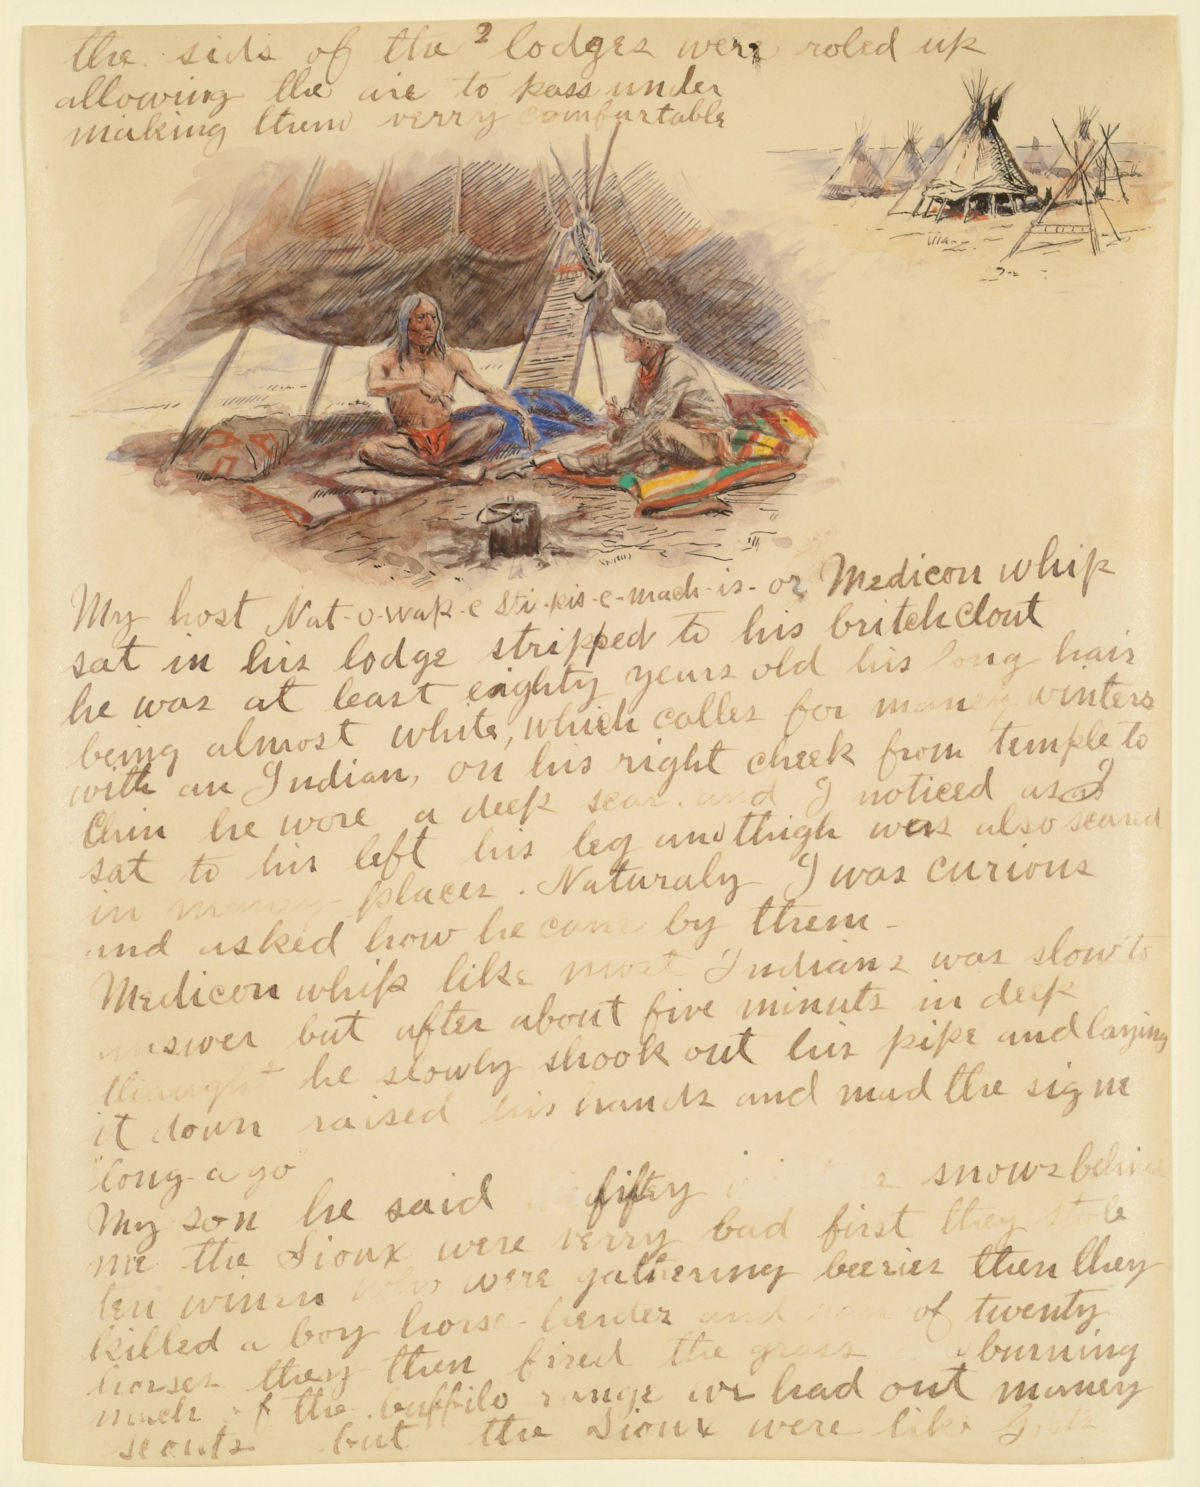 the sids of the lodges were roled up
allowing the aie to pass under
making them verry comfortable
My host Nat-o-wap-e Sti-pis-e-mach-is- or Medicon whip
sat in his lodge stripped to his britchclout
he was at least eighty years old his long hair
being almost white, which calles for maney winters
with an Indian, on his right cheek from temple to
Chin he wore a deep scar and I noticed as I
sat to his left his leg and thigh were also scared
in maney places. Naturaly I was curious
and asked how he came by them-
Medicon whip like most Indians was slow to
answer but after about five minuts in deep
thaught he slowly shook out his pipe and laying
it down raised his hands and mad the sign
"long-a go"
My son he said fifty snows behind
me the Sioux were verry bad first they stole
ten wimen who were gathering beeries then they
killed a boy horse-herder and of twenty
horses they then fired the grass burning
much of the buffilo range we had out maney
scouts but the Sioux were like Gosts